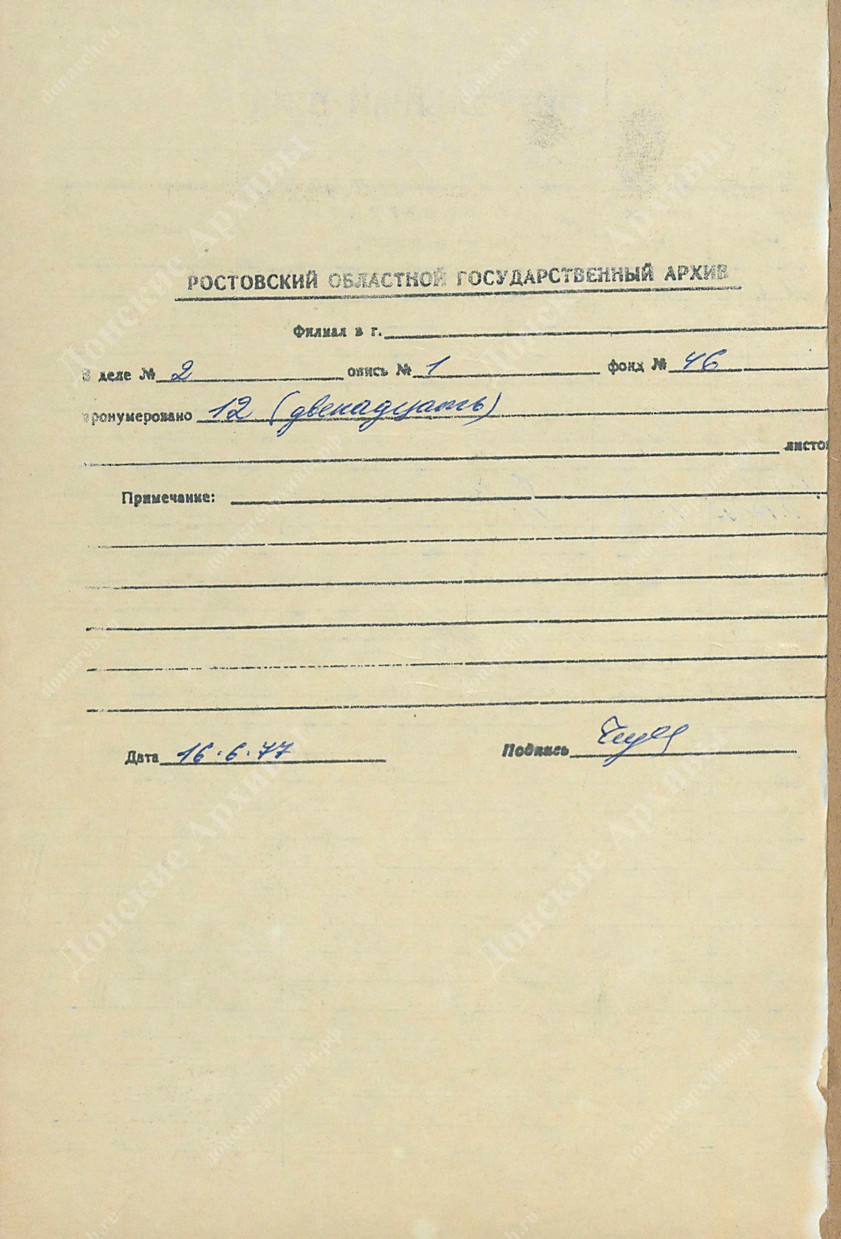 РОСТОВСКИЙ ОБЛАСТНОЙ ГОСУДАРСТВЕННЫЙ АРХИВ
Филиал в г.
В деле № 2 опись № 1 фонд № 46
пронумеровано 12 (двенадцать)
листов
Примечание:
Дата 16.6.77 Подпись